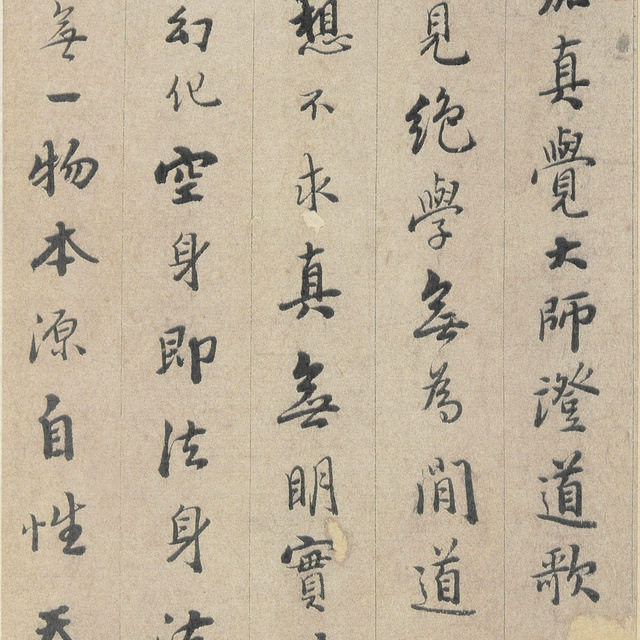 真覺大師澄道歌
見絕學無為閒道
想不求真無明實
幻化空身即法身法
無一物本源自性天